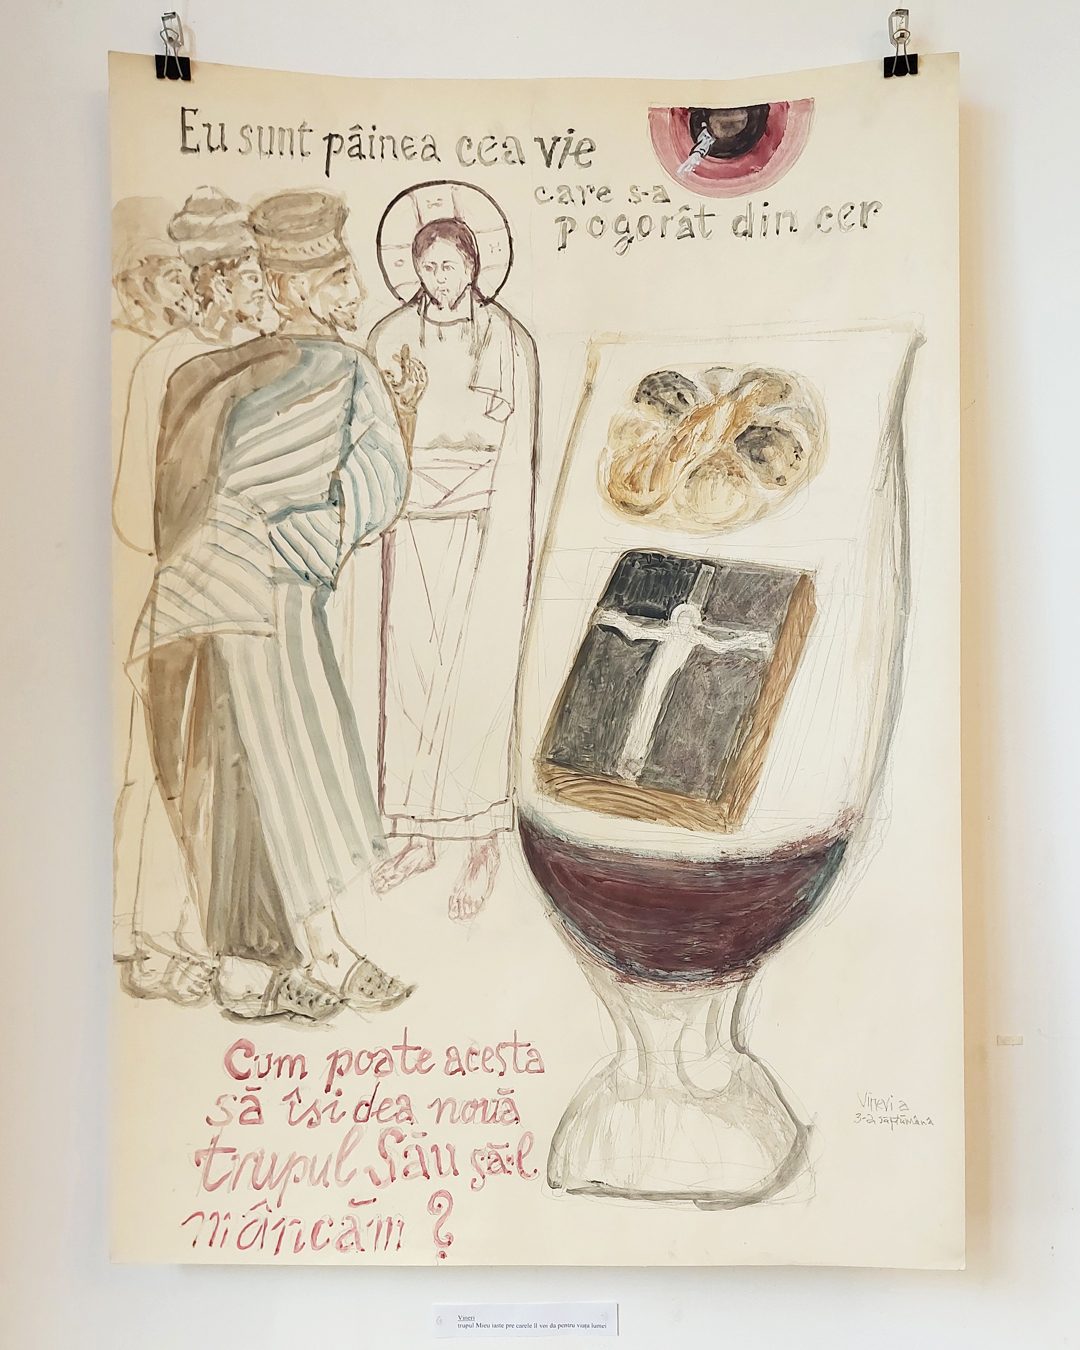 Eu sunt pâinea cea vie
care s-a
pogorât din cer
Cum poate acesta
să îsi dea nouă
trupul Său să-l
mâncăm ?
Vinevi a
3-a săptămâna
Vineri
trupul Mieu iaste pre carele îl voi da pentru viața lumei